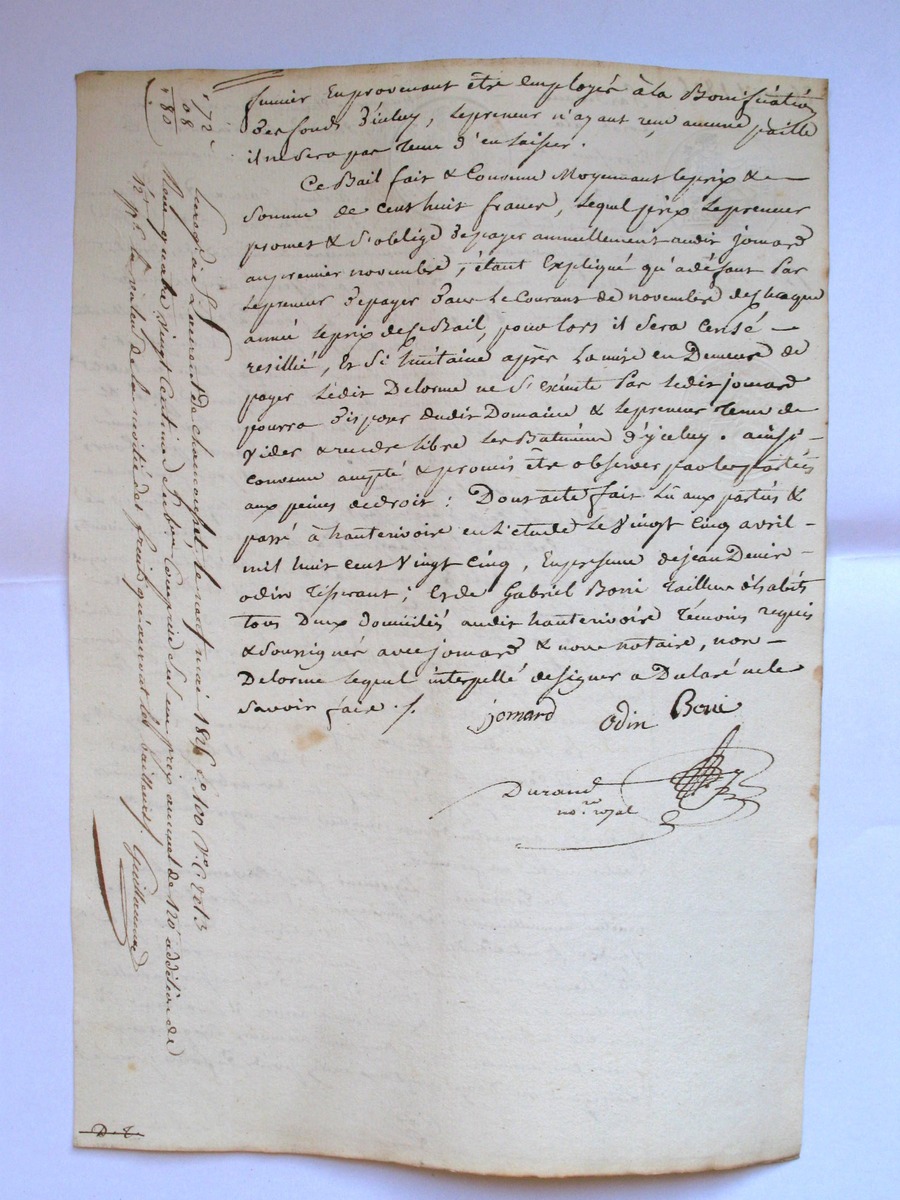 fumier en provenant être employés à la Bonification
des fonds d'icluy, le preneur n'ayant reçu aucune paille
il ne sera pas tenu d'en laisser.
Ce Bail fait & Convenu Moyennant le prix &
Somme de Cent huit francs, lequel prix le preneur
promet & S'oblige de payer annuellement audit jomard
au premier novembre, étant Expliqué qu'a défaut par
le preneur de payer dans Le Courant de novembre de chaque
année le prix de ce Bail, pour lors il Sera Censé
resillié, Et Si huitaine après La mise en Demeure de
payer Ledit Delorme ne S'exécute pas ledit jomard
pourra disposer dudit Domaine & le preneur tenu de
Vider & rendre libre Les Batimens d'yceluy. ainsi
convenu accepté & promis être observer par les parties
aux peines de droit : Dont acte fait Lû aux parties &
passé à hauterivoire en L'étude Le Vingt Cinq avril
mil huit cent Vingt Cinq, En présence de jean Denis
odin Tisserant ; Et de Gabriel Boni Tailleur d'habits
tous Deux domiciliés audit hauterivoire Témoins requis
& Soussignés avec jomard & nous notaire, non
Delorme lequel interpellé de signer a Déclaré ne le
Savoir faire ./.
jomard odin Boni
Durand
no.re royal
172
108
180
Enreg. à St Laurent de chamousset, le neuf mai 1825 f.o 100 v.o C. 2 et 3
Reçu quatre vingt centimes Subvention Comprise Sur un prix annuel de 120f addition de
12f p.r la valeur de la moitié des fruits qu'auront les bailleurs. Guillaume
D. L.